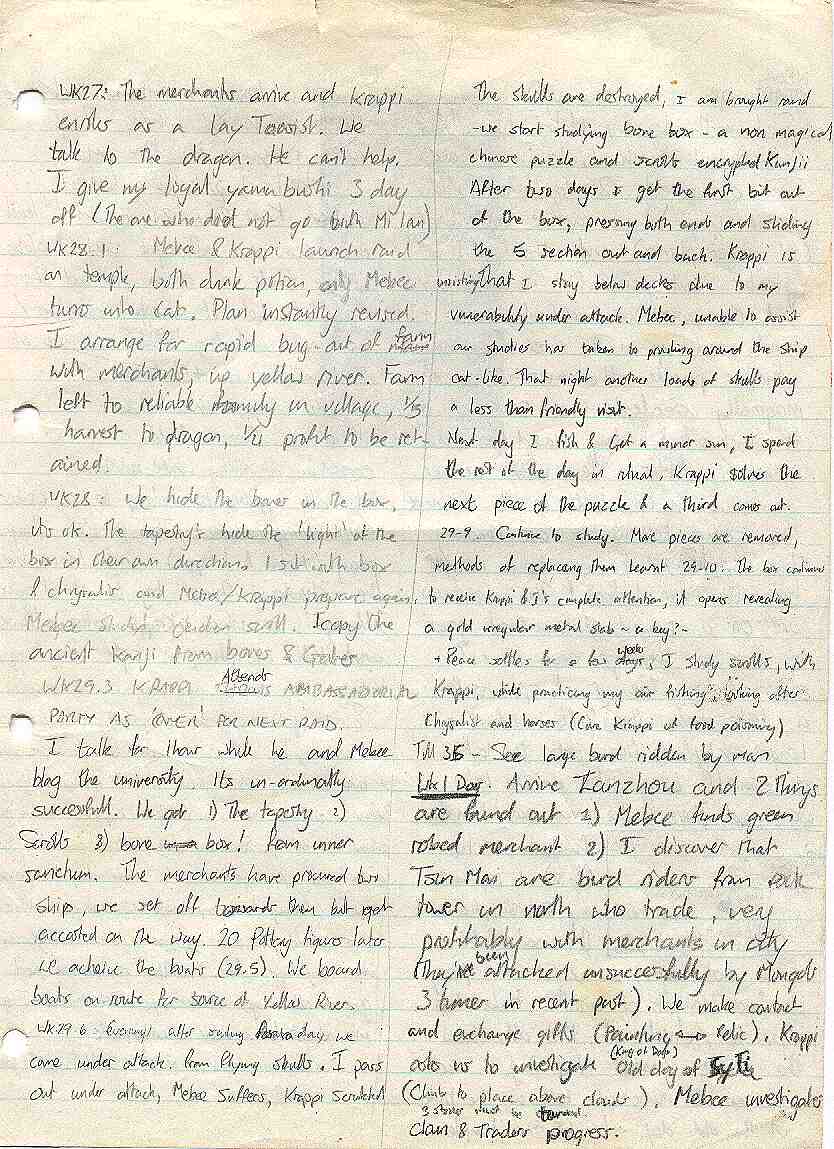 WK27: The merchants arrive and Krappi
enrolls as a lay Taoist. We
talk to the dragon. He can't help.
I give my loyal yamabushi 3 day
off (The one who does not go with Mi lan)
WK28.1: Mebee & Krappi launch raid
on temple, both drink potion, only Mebee
turns into cat. Plan instantly revised.
I arrange for rapid bug-out of farm
with merchants, up yellow river. Farm
left to reliable family in village, 1/5
harvest to dragon, 1/4 profit to be ret-
ained.
WK28: We hide the bones in the box,
its ok. The tapestry's hide the 'light' of the
box in their own direction. I sit with box
& chrysalis and Mebee/Krappi prepare again.
Mebee studies scroll. I copy the
ancient Kanji from bones &
WK29.3 KRAPPI Attends AMBASSADORIAL
PARTY AS 'COVER' FOR NEXT RAID.
I talk for 1 hour while he and Mebee
blag the university. Its un-ordinally
successfull. We get 1) The tapestry 2)
Scrolls 3) bone box! from inner
sanctum. The merchants have procured two
ship, we set off towards them but get
accosted on the way. 20 Pottery figures later
we achieve the boats (29.5). We board
boats on route for source of Yellow River.
WK29.6 Evening after sailing day we
came under attack from flying skulls. I pass
out under attack, Mebee suffers, Krappi scratched
The skulls are destroyed, I am brought round
-we start studying bone box - a non magical
chinese puzzle and scrolls encrypted Kanjii
After two days I get the first bit out
of the box, pressing both ends and sliding
the 5 section out and back. Krappi is
insisting that I stay below decks due to my
vunerability under attack. Mebee, unable to assist
our studies has taken to prowling around the ship
cat-like. That night another loads of skulls pay
a less than friendly visit.
Next day I fish & Get a minor sun, I spend
the rest of the day in ritual, Krappi solves the
next piece of the puzzle & a third comes out.
29-9. Continue to study. More pieces are removed,
methods of replacing them learnt 29-10. The box continues
to receive Krappi & I's complete attention, it opens revealing
a gold irregular metal slab ~ a key?-
+ Peace settles for a few weeks, I study scrolls, with
Krappi, while practicing my air fishing, looking after
Chrysalist and horses (Cure Krappi of food poisoning)
TM 35 - See large bird ridden by man
Wk1 Day. Arrive Lanzhou and 2 Things
are found out 1) Mebee finds green
robed merchant 2) I discover that
Tsun Man are bird riders from rock
tower in north who trade, very
profitably with merchants in city
(They've been attacked unsuccessfully by Mongols
3 times in recent past). We make contact
and exchange gifts (Painting <-> Relic). Krappi
asks us to investigate (King of Days) Old day of
(Climb to place above clouds). Mebee investigates
3 stones must be
Clan & Traders progress.